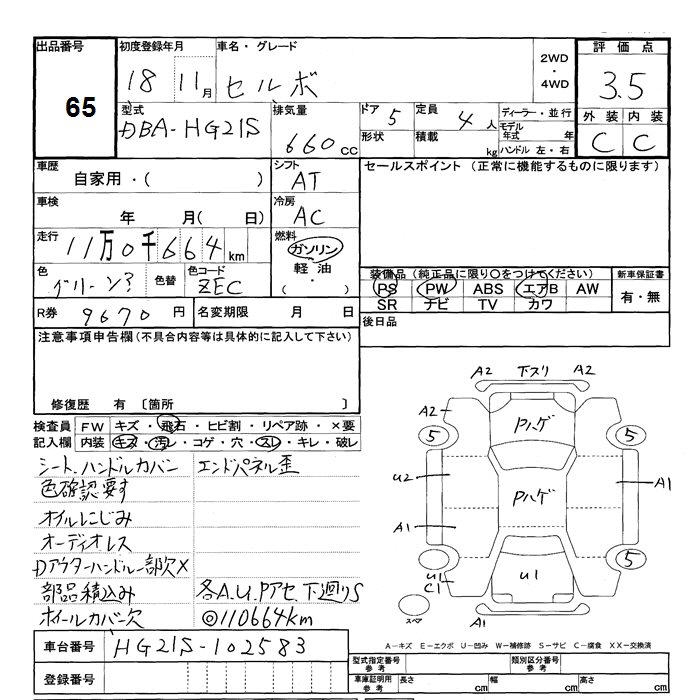 出品番号
65
初度登録年月
18 11月
車名・グレード
セルボ
2WD
・
4WD
評価点
3.5
型式
DBA-HG21S
排気量
660cc
ドア 5
形状
定員 4人
積載 kg
ディーラー・並行
モデル年式 年
ハンドル 左・右
外装 内装
C C
車歴
自家用・( )
シフト
AT
セールスポイント (正常に機能するものに限ります)
車検
年 月( 日)
冷房
AC
走行
11万0千664km
燃料
ガソリン
軽油
( ・ )
色
グリーン?
色替
色コード
ZEC
装備品 (純正品に限り〇をつけてください)
PS PW ABS エアB AW
SR ナビ TV カワ
新車保証書
有・無
R券 9670円
名変期限 月 日
後日品
注意事項申告欄(不具合内容等は具体的に記入して下さい)
修復歴 有 〔箇所 〕
検査員記入欄
FW キズ・飛石・ヒビ割・リペア跡・×要
内装 キズ・汚レ・コゲ・穴・スレ・キレ・破レ
シート、ハンドルカバン エンドパネル歪
色確認要す
オイルにじみ
オーディオレス
Dアウターハンドル一部欠×
部品積込み 各A.U.Pアセ 下廻りS
ホイールカバー欠 ◎110664km
車台番号 HG21S-102583
登録番号
A2 下スリ A2
A2
Pハゲ
5 5
U2
Pハゲ
A1
A1
5
U1
U1
C1
スペア
A1
A-キズ E-エクボ U-凹み W-補修跡 S-サビ C-腐食 XX-交換済
型式指定番号 参考
類別区分番号 参考
車庫証明用 参考
長さ cm 幅 cm 高さ cm